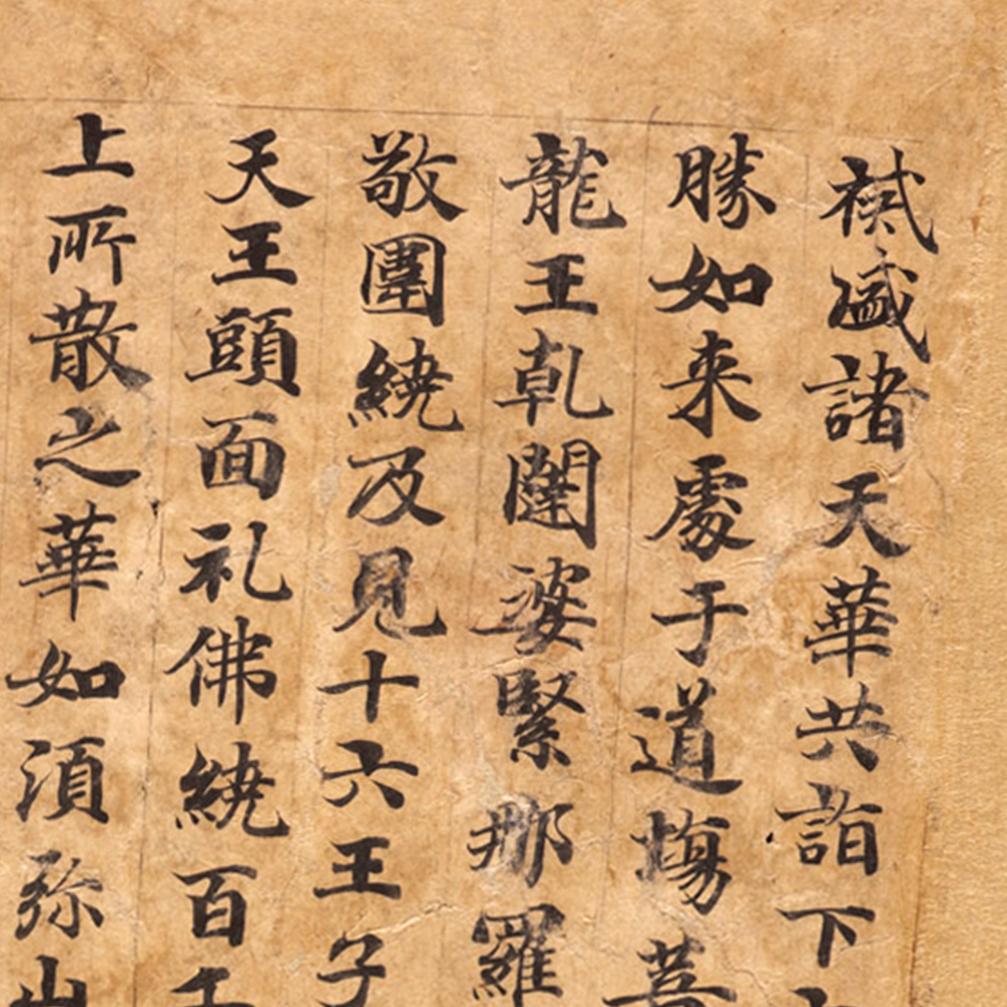 裓盛諸天華共詣下
勝如来處于道塲菩
龍王乹闥婆緊那羅
敬圍繞及見十六王子
天王頭面礼佛繞百千
上所散之華如須弥山